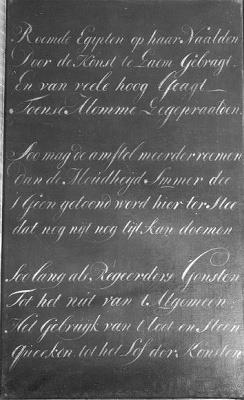 Roemde Egipten op haar Naalden
Door de Konst te Laem Gebragt
En van veele hoog Geagt
Toense Momme Zegepraalden

Soo mag de amstel meerder roemen
dan de Heidheijd Immer dee
t Geen getoond werd hier ter Stee
dat nog nijt nog tijt kan doemen

soo lang als Regeerders Gonsten
Tot het nut van t Algemeen
Het Gebruijk van t loot en Steen
Queeken tot het Lof der Konsten